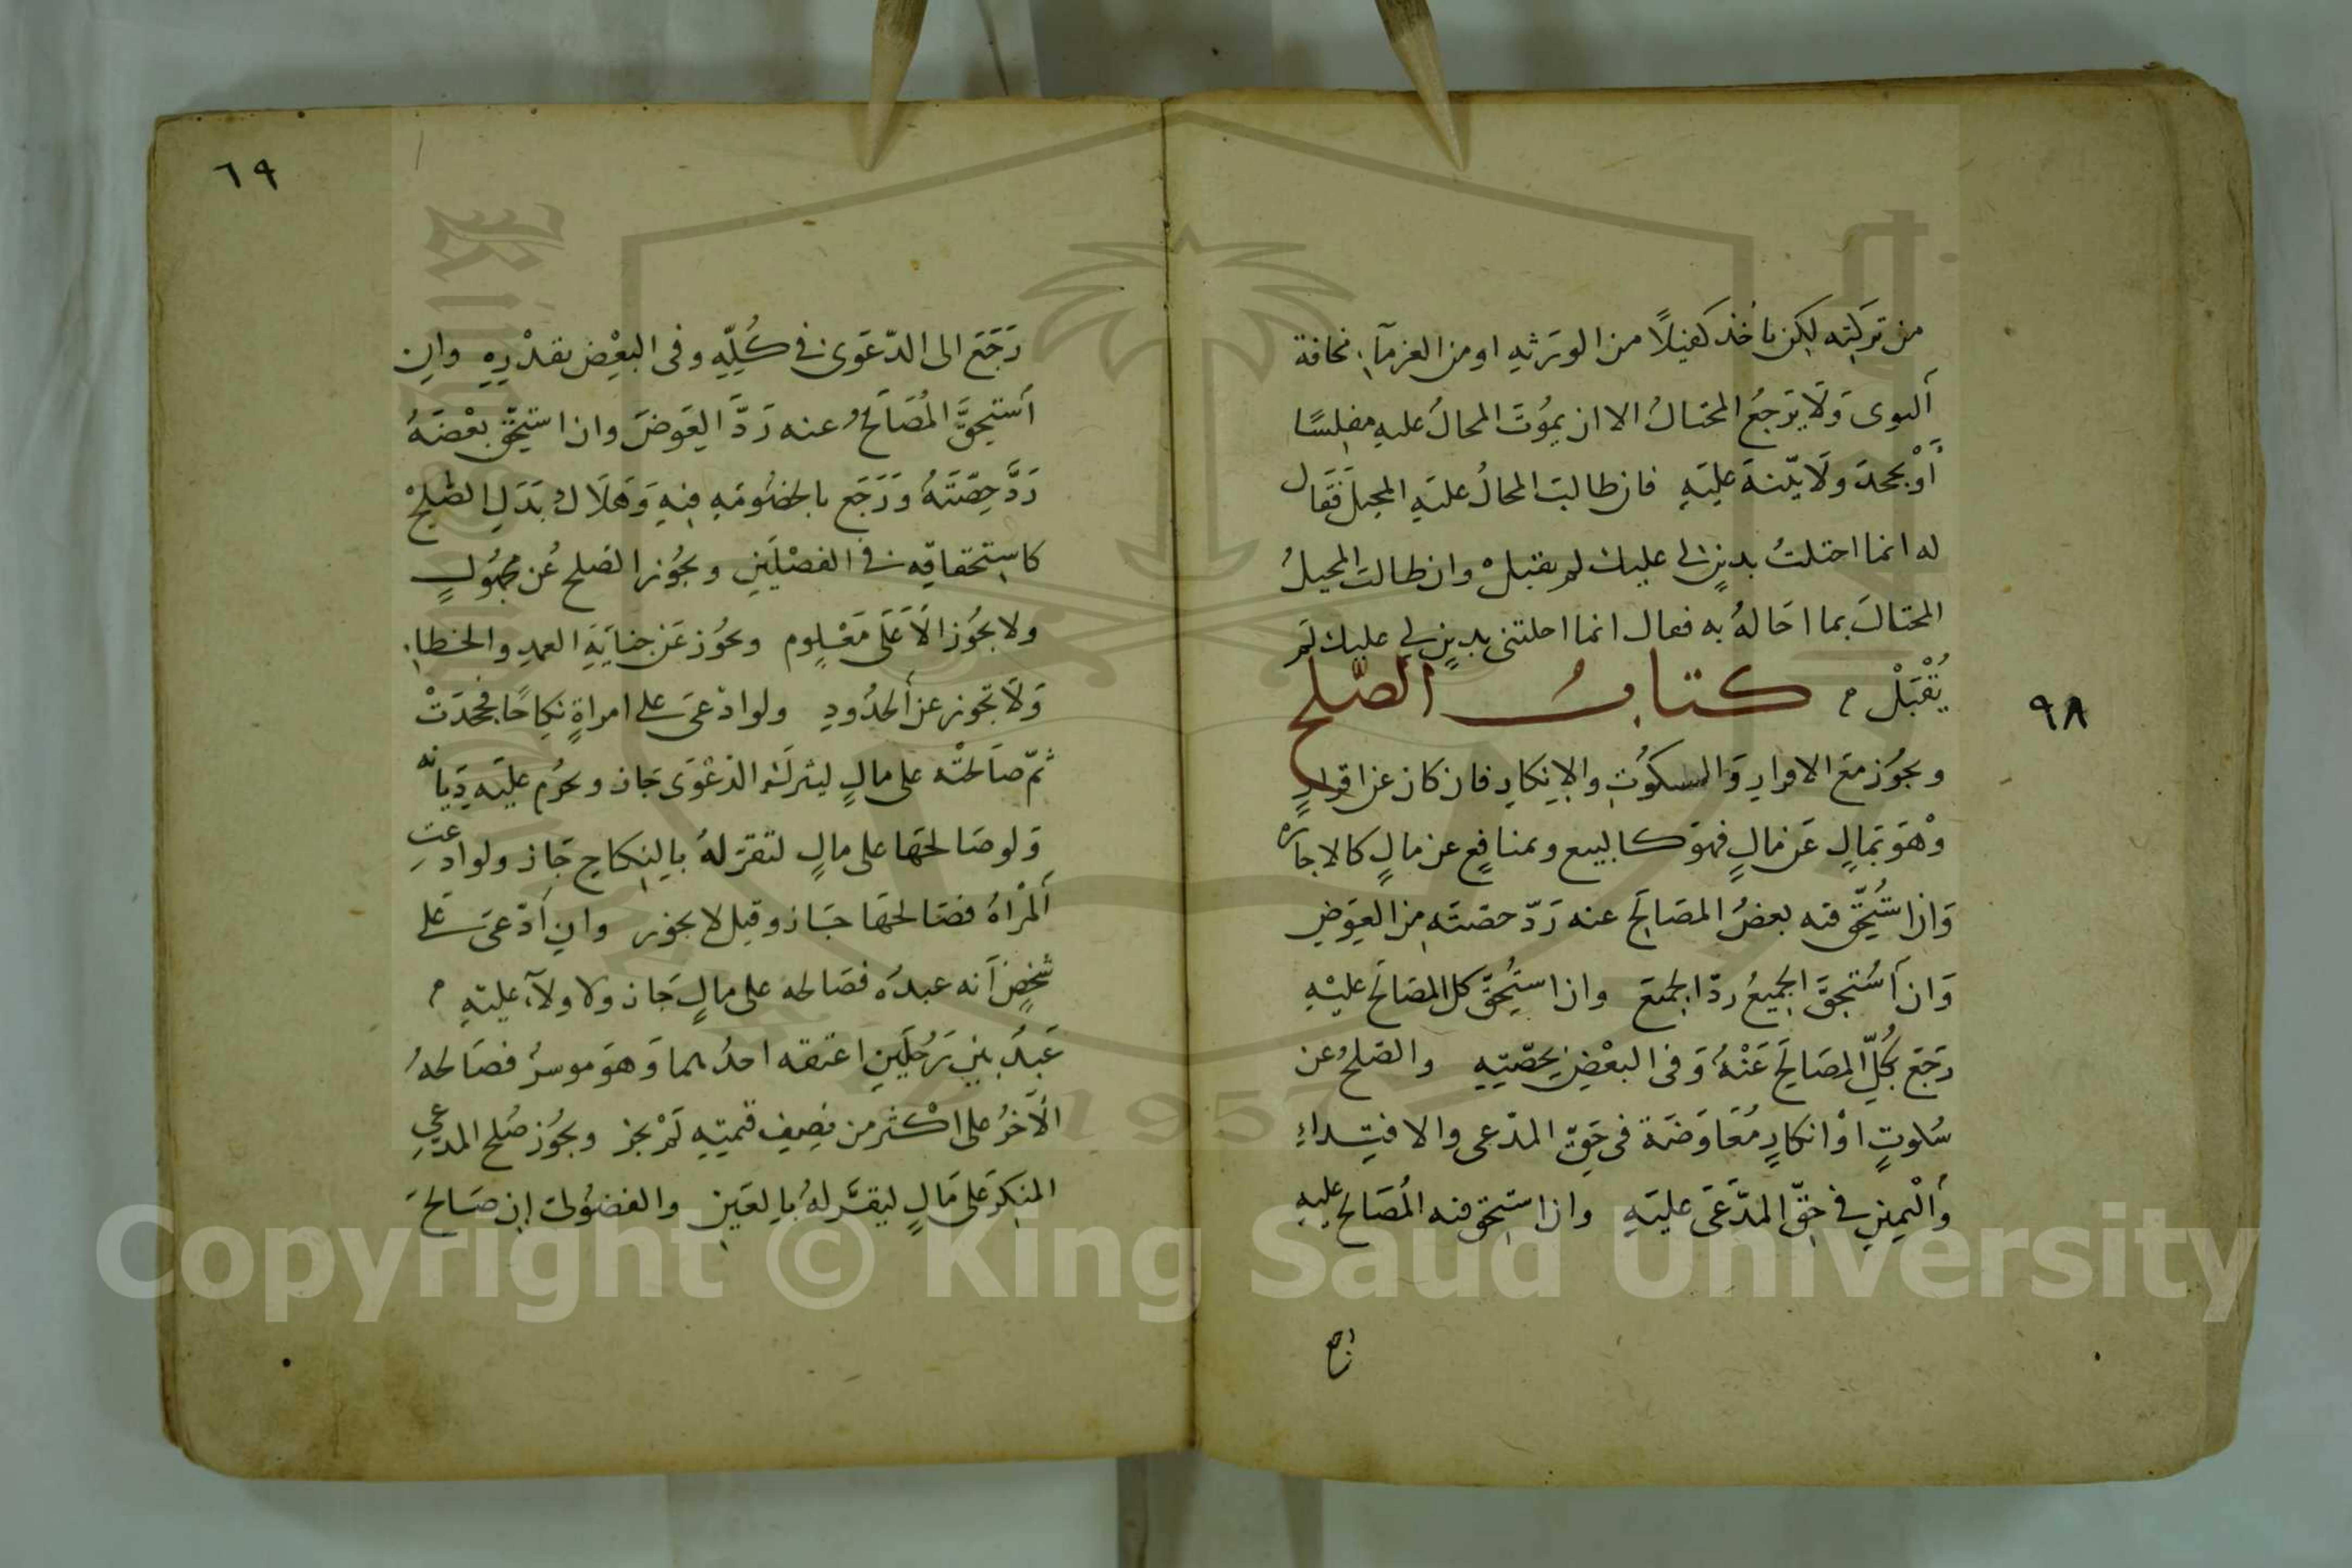 من تركته لكن ياخذ كفيلاً من الورثه او من الغرمآء مخافة
ألتوى وَلَا يَرجعُ المحتالُ الا ان يموُتَ المحالُ عليهِ مفلِسًا
أَوْ يجحدَ ولَا بيّنةَ عليَهِ فان طالبَ المحالُ عليَهِ المحيلَ فَقَال
له انما احتلتُ بدينٍ لى عليك لم يقبلْ وان طالبَ المحيلُ
المحتالَ بما احَالهُ به فقال انما احلتنى بدينٍ لي عليك لَم
يُقْبَلْ م كتابُ الصّلح
ويجوُز معَ الاقرارِ وَالسكوُتِ والإنكارِ فان كان عن اقرارٍ
وْهوَ بمَالٍ عَن مَالٍ فهوَ كالبيع وبمنافعٍ عن مالٍ كالاجارة
وَان استُحِقّ فيه بعضُ المصَالَحِ عنه رَدّ حصّتَه من العِوَضِ
وَان أستُحِقَّ الجميعُ ردّ الجميَعَ وان استُحِقّ كل المصَالَح عليْهِ
رجَعَ بكُلِّ المصَالَحِ عَنْهُ وَفى البعْضِ بحِصّتِهِ والصّلحُ عن
سُكوتٍ اوْ انكارٍ مُعَاوَضَة فى حَقِّ المدّعى والافتِداءِ
وَأليْمينِ في حقِّ المدَّعَى عليَهِ وان استحِقّ فيه المُصَالَح عليهِ
رجع
٩٨
٦٩
رَجَعَ الى الدّعوَى في كُلِّهِ وفى البعْضِ بقدْرِهِ وان
أستحِقَّ المُصَالَحُ عنه رَدَّ العِوَضَ وان استحِقّ بعْضَهُ
رَدَّ حِصّتَهُ وَرَجَع بالخصُومَهِ فيهِ وَهَلَاكُ بَدَلِ الصّلحْ
كاستحقاقِه في الفصْلَينِ ويجوُز الصّلح عُن مجهُولٍ
ولا يجُوز الاَّ عَلَى مَعْلوم ويجوُز عَن جنايَةِ العمدِ والخطاءِ
وَلَا تجوز عن ألحدُودِ ولو ادعىَ على امراةٍ نكِاحًا فجحدَتْ
ثمّ صَالحتْه على مالٍ ليترك الدعْوَى جَاز ويحرُم عليَه دِيَانه
وَلو صَالحَهَا على مالٍ لتقرّ لهُ بالنكاحِ جَاز ولو ادعتِ
ألمْراةُ فصَالحهَا جَاز وقيل لا يجوز وان أدّعىَ عَلى
شخصٍ أنه عبدُه فصَالحه على مالٍ جَاز ولا ولآء عليَهِ م
عَبدٌ بين رَجُلَينِ اعتقه احدُهما وَهوَ موسرٌ فصَالحهُ
الآخرُ على اكْثر من نصِف قيمتهِ لَمْ يجز ويجوُز صُلح المدعي
المنكِرَ على مَالٍ ليقرَّ لهُ بالعَينِ والفضوُلىّ ان صَالحَ